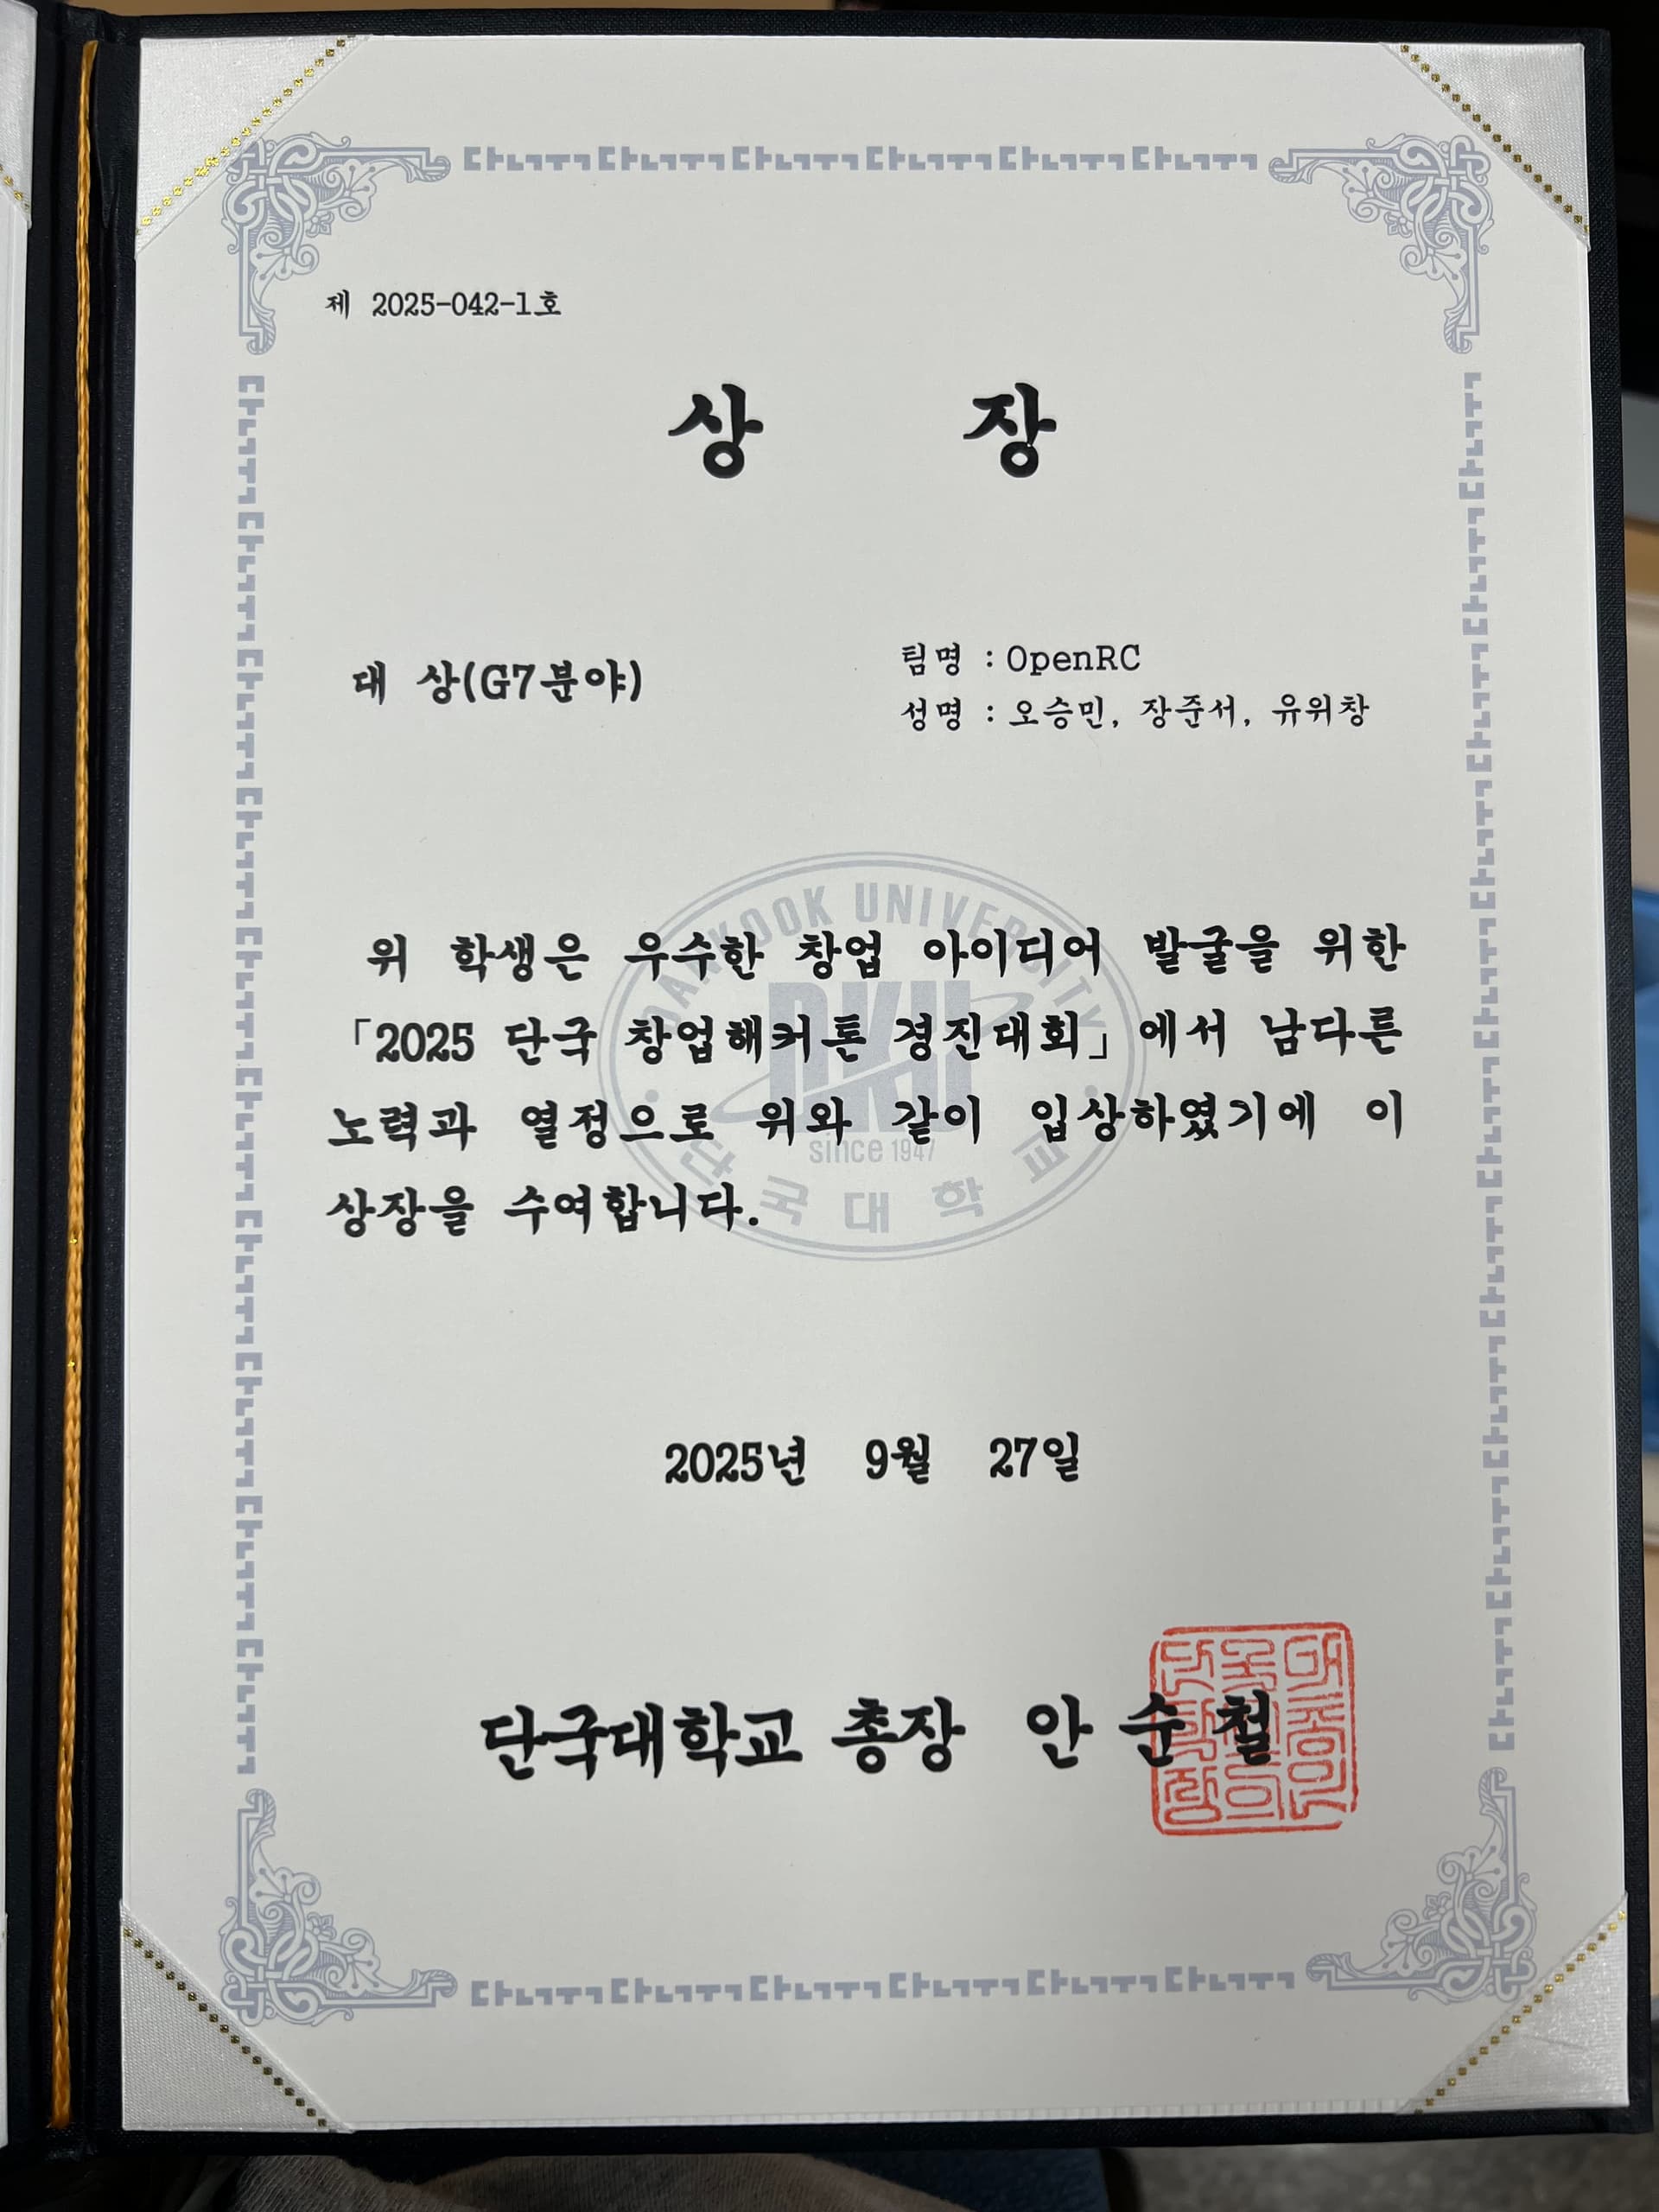 제 2025-042-1호
상 장
대 상(G7분야)
팀명 : OpenRC
성명 : 오승민, 장준서, 유위창
위 학생은 우수한 창업 아이디어 발굴을 위한
「2025 단국 창업해커톤 경진대회」에서 남다른
노력과 열정으로 위와 같이 입상하였기에 이
상장을 수여합니다.
DANKOOK UNIVERSITY
DKU
since 1947
단국대학교
2025년 9월 27일
단국대학교 총장 안 순 철